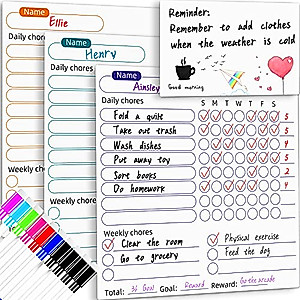 Name
Ellie
Daily chores
Weekly chores
Name
Henry
Daily chores
Weekly chores
Name
Ainsley
Daily chores
S M T W T F S
Fold a quilt 5
Take out trash 5
Wash dishes 5
Put away toy 5
Sort books 2
Do homework 4
Weekly chores
Clear the room
Go to grocery
Physical exercise
Feed the dog
Total: 36 Goal: Reward Reward: Go the arcade
Reminder:
Remember to add clothes
when the weather is cold
Good morning